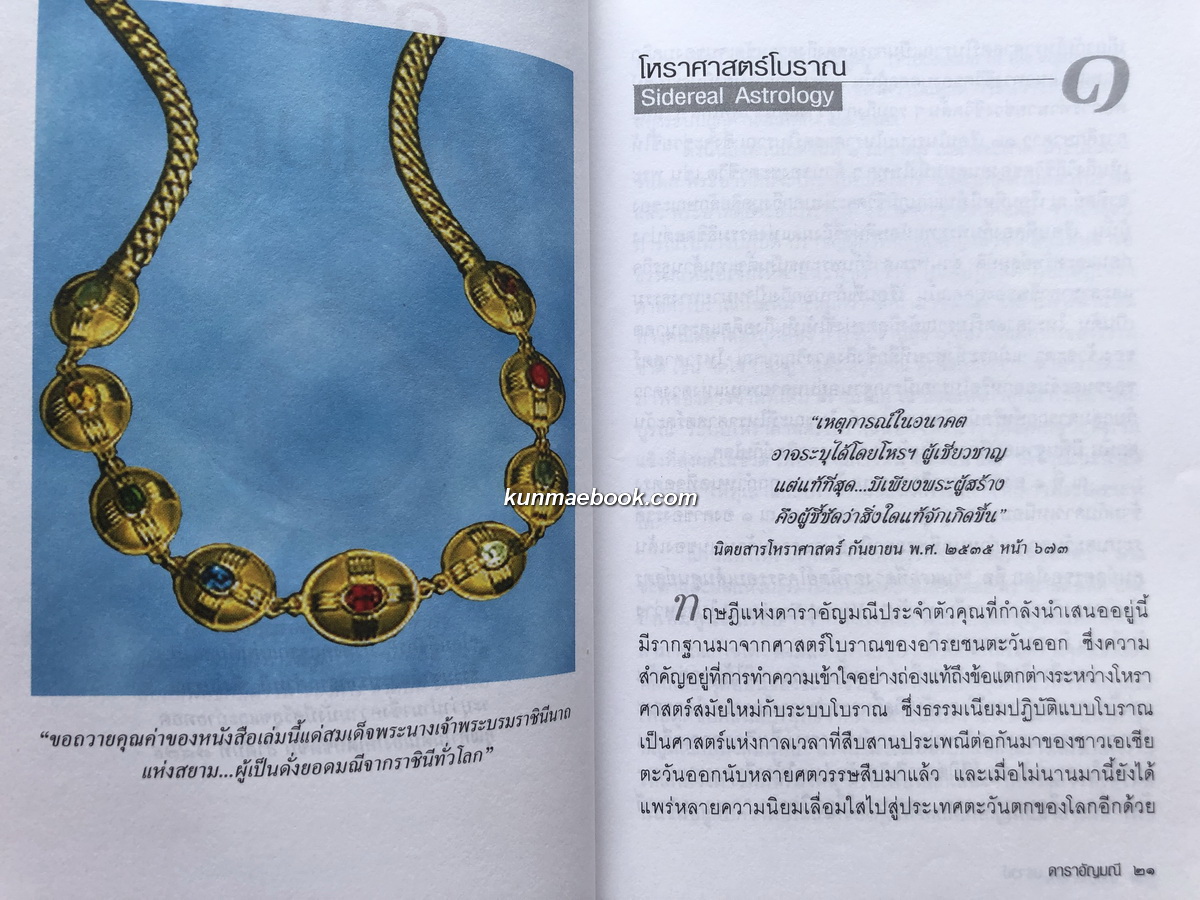 “ขอถวายคุณค่าของหนังสือเล่มนี้แด่สมเด็จพระนางเจ้าพระบรมราชินีนาถ
แห่งสยาม...ผู้เป็นดั่งยอดมณีจากราชินีทั่วโลก”
โหราศาสตร์โบราณ
Sidereal Astrology
๑
“เหตุการณ์ในอนาคต
อาจระบุได้โดยโหรฯ ผู้เชี่ยวชาญ
แต่แท้ที่สุด...มีเพียงพระผู้สร้าง
คือผู้ชี้ชัดว่าสิ่งใดแท้จักเกิดขึ้น”
นิตยสารโหราศาสตร์ กันยายน พ.ศ. ๒๕๓๕ หน้า ๖๗๓
ทฤษฎีแห่งดาราอัญมณีประจำตัวคุณที่กำลังนำเสนออยู่นี้
มีรากฐานมาจากศาสตร์โบราณของอารยชนตะวันออก ซึ่งความ
สำคัญอยู่ที่การทำความเข้าใจอย่างถ่องแท้ถึงข้อแตกต่างระหว่างโหรา
ศาสตร์สมัยใหม่กับระบบโบราณ ซึ่งธรรมเนียมปฏิบัติแบบโบราณ
เป็นศาสตร์แห่งกาลเวลาที่สืบสานประเพณีต่อกันมาของชาวเอเชีย
ตะวันออกนับหลายศตวรรษสืบมาแล้ว และเมื่อไม่นานมานี้ยังได้
แพร่หลายความนิยมเลื่อมใสไปสู่ประเทศตะวันตกของโลกอีกด้วย
ดาราอัญมณี ๒๑
kunmaebook.com